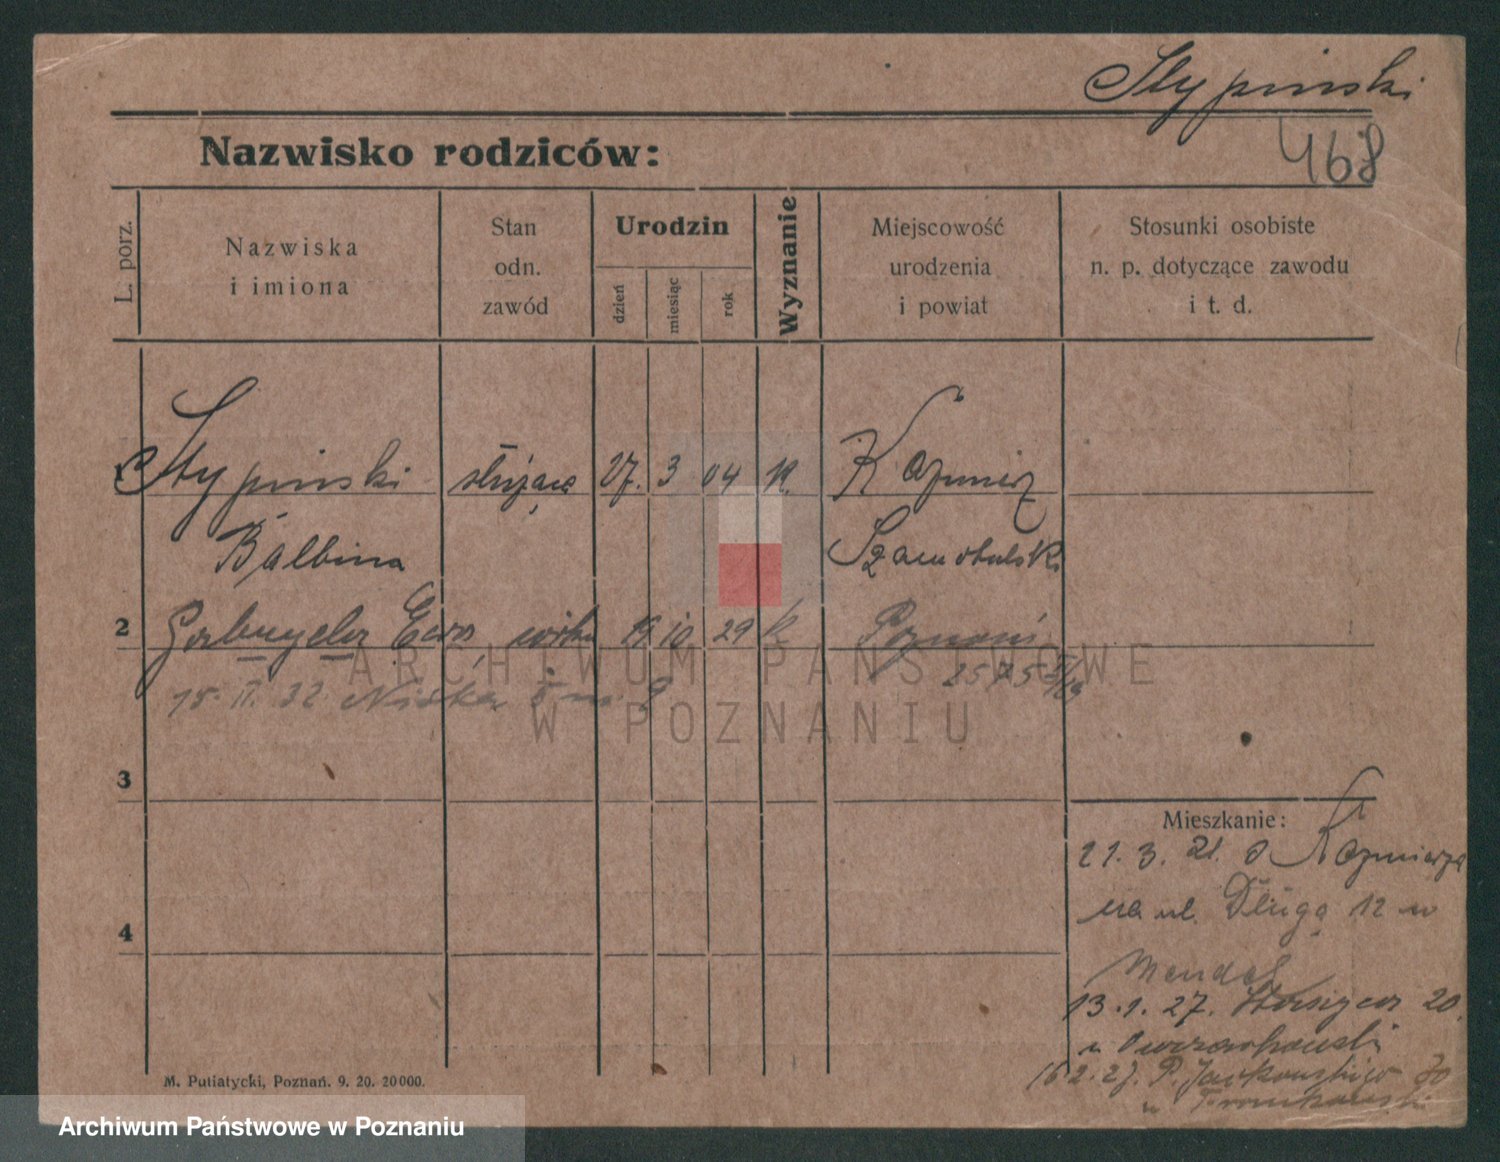 Stypinski
468
Nazwisko rodziców:
L. porz.
Nazwiska
i imiona
Stan
odn.
zawód
Urodzin
dzień
miesiąc
rok
Wyznanie
Miejscowość
urodzenia
i powiat
Stosunki osobiste
n. p. dotyczące zawodu
i t. d.
Stypinski służąca 27. 3 04 K. Kazmierz
Balbina Szamotulski
2 Ewa 19 10 29 k Poznań
15. II. 32 Niska 5 m. 9
ARCHIWUM PAŃSTWOWE
W POZNANIU
3
Mieszkanie:
21. 3. 21. Kazmierza
na ul. Długą 12 u
Mendel
4
13. 1. 27. 20.
u
16. 2. 27. P. Jackowskiego 30
u
M. Putiatycki, Poznań. 9. 20. 20000.
Archiwum Państwowe w Poznaniu